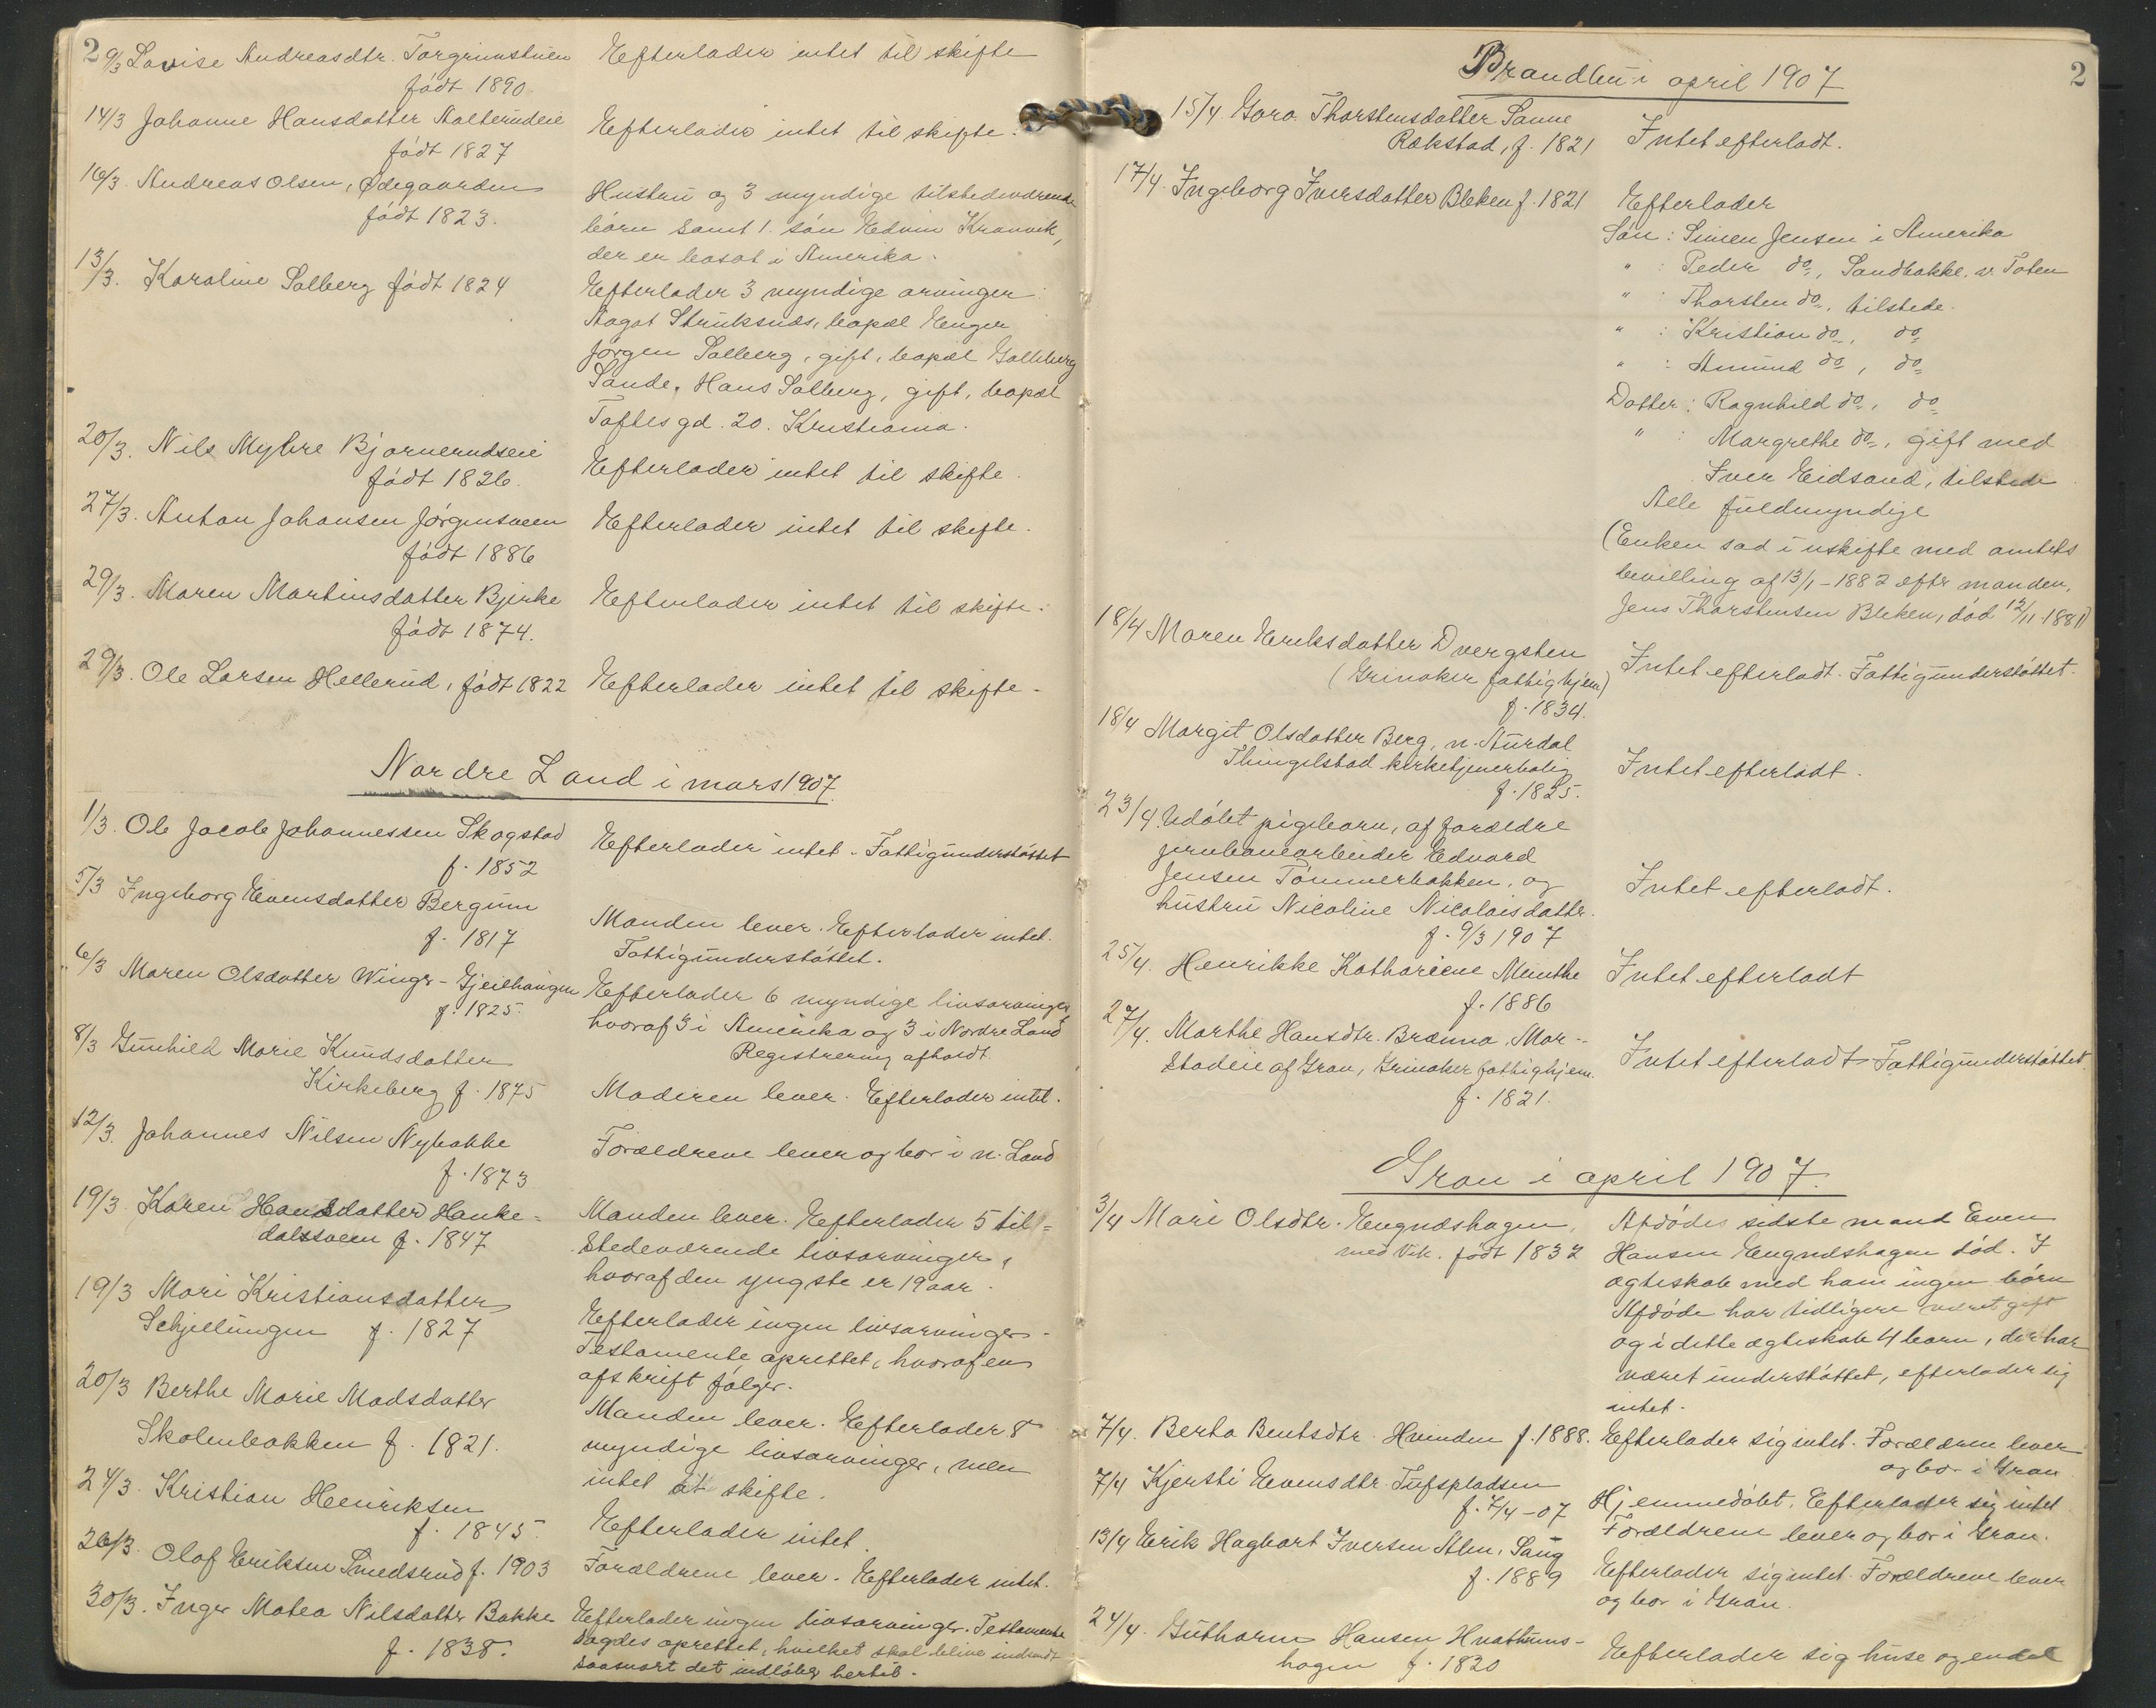 2
9/3 Lovise Andreasdtr. Torgrimstuen
født 1890
Efterlader intet til skifte
14/3 Johanne Hansdatter
født 1827
Efterlader intet til skifte.
16/3. Andreas Olsen, Ødegaarden
født 1823.
Hustru og 3 myndige tilstedeværende
børn samt 1. søn Edvin Kranvik,
der er bosat i Amerika.
13/3. Karoline Solberg født 1824
Efterlader 3 myndige arvinger:
Aagot Struksnæs, bopæl Enger
Jørgen Solberg, gift, bopæl
Sande. Hans Solberg, gift, bopæl
Toftesgd. 20. Kristiania.
20/3. Nils Myhre Bjørnerudseie
født 1826.
Efterlader intet til skifte.
27/3. Anton Johansen Jørgensveen
født 1886
Efterlader intet til skifte.
29/3. Maren Martinsdatter Bjerke
født 1874.
Efterlader intet til skifte.
29/3. Ole Larsen Hellerud, født 1822
Efterlader intet til skifte.
Nordre Land i mars 1907.
1/3. Ole Jacob Johannessen Skogstad
f. 1852
Efterlader intet. Fattigunderstøttet
5/3 Ingeborg Evensdatter Bergum
f. 1817
Manden lever. Efterlader intet.
Fattigunderstøttet.
6/3 Maren Olsdatter Wings-Gjeilhaugen
f. 1825.
Efterlader 6 myndige livsarvinger,
hvoraf 3 i Amerika og 3 i Nordre Land
Registrering afholdt.
8/3 Gunhild Marie Knudsdatter
Kirkeberg f. 1875
Moderen lever. Efterlader intet.
12/3. Johannes Nilsen Nybakke
f. 1873
Forældrene lever og bor i n. Land
19/3. Karen Hansdatter Hanke-
dalssveen f. 1847
Manden lever. Efterlader 5 til-
stedeværende livsarvinger,
hvoraf den yngste er 19 aar.
19/3 Mari Kristiansdatter
Schjellingen f. 1827
Efterlader ingen livsarvinger.
Testamente oprettet, hvoraf en
afskrift følger.
20/3 Berthe Marie Madsdatter
Skolenbakken f. 1821.
Manden lever. Efterlader 8
myndige livsarvinger, men
intet at skifte.
24/3. Kristian Henriksen
f. 1845.
Efterlader intet.
26/3. Olaf Eriksen Smedsrud f. 1903
Forældrene lever. Efterlader intet.
30/3. Inger Matea Nilsdatter Bakke
f. 1838.
Efterlader ingen livsarvinger. Testamente
sagdes oprettet, hvilket skal blive indsendt
saasnart det indløber hertil.
2
Brandbu i april 1907
15/4 Goro Thorstensdatter Sanne
Rækstad, f. 1821
Intet efterladt.
17/4. Ingeborg Iversdatter Bleken f. 1821
Efterlader
Søn: Simen Jensen i Amerika
" : Peder do, Sandbakke. v. Toten
" : Thorsten do, tilstede.
" : Kristian do, do
" : Amund do, do
Datter: Ragnhild do, do
" : Margrethe do, gift med
Iver Eidsand, tilstede
Alle fuldmyndige
(Enken sad i uskifte med amtets
bevilling af 13/1-1882 efter manden,
Jens Thorstensen Bleken, død 12/11-1881)
18/4 Maren Eriksdatter Dvergsten
(Grinaker fattighjem)
f. 1834.
Intet efterladt. Fattigunderstøttet.
18/4 Margit Olsdatter Berg, n. Aurdal
Thingelstad kirketjenerbolig
f. 1825.
Intet efterladt.
23/4. Udøbt pigebarn, af forældre
jernbanearbeider Edvard
Jensen Tømmerbakken, og
hustru Nicoline Nicolaisdatter.
f. 9/3 1907
Intet efterladt.
25/4. Henrikke Katharine Munthe
f. 1886
Intet efterladt
27/4. Marthe Hansdtr. Brænna, Mor-
stadeie af Gran, Grinaker fattighjem.
f. 1821.
Intet efterladt. Fattigunderstøttet.
Gran i april 1907.
3/4 Mari Olsdtr. Engnæshagen,
med Vik. født 1832
Afdødes sidste mand Even
Hansen Engnæshagen død. I
ægteskab med ham ingen børn
Afdøde har tidligere været gift
og i dette ægteskab 4 barn, der har
været understøttet, efterlader sig
intet.
7/4. Berta Bentsdtr. Hvinden f. 1888.
Efterlader sig intet. Forældrene lever
og bor i Gran.
7/4 Kjersti Evensdtr. Tufspladsen
f. 7/4-07
Hjemmedøbt. Efterlader sig intet
Forældrene lever og bor i Gran.
13/4 Erik Hagbart Iversen Alm, Saug
f. 1889
Efterlader sig intet. Forældrene lever
og bor i Gran.
24/4. Guthorm Hansen Hvattums-
hagen f. 1820
Efterlader sig huse og endel